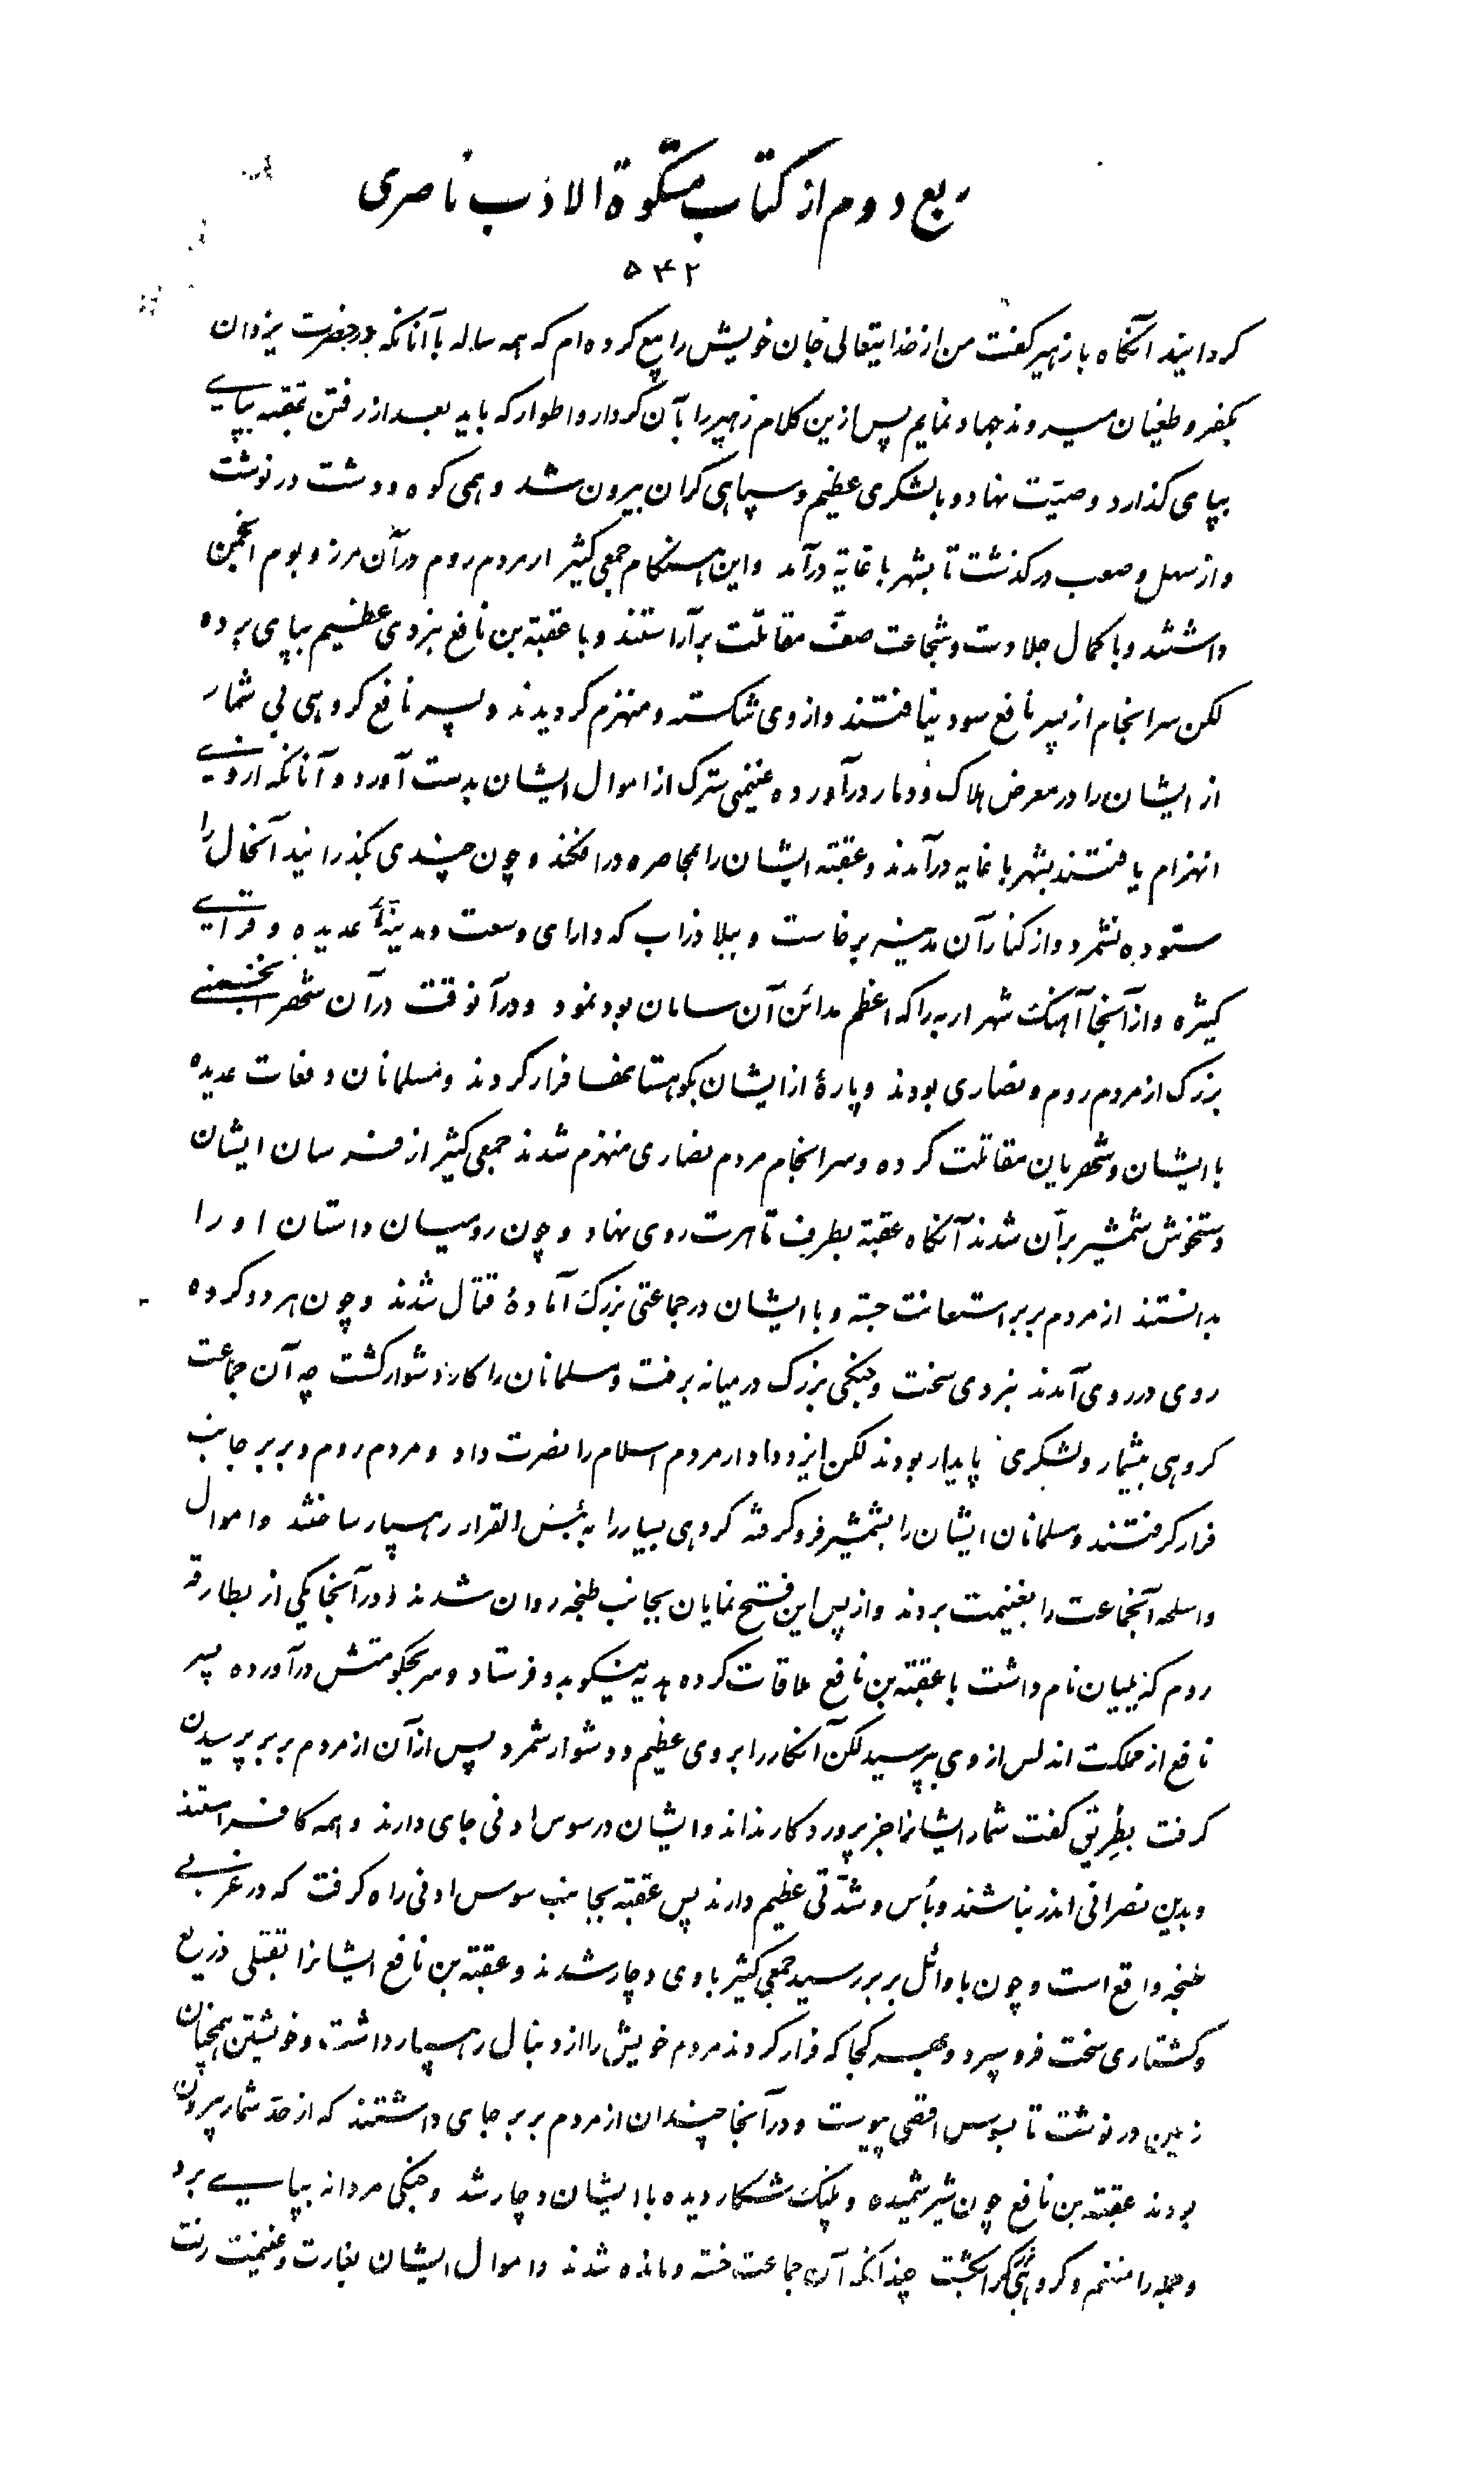 ربع دوم از کتاب مشکوة الادب ناصری
۵۴۲
کردانید آنکاه با زهیر کفت من از خدایتعالی جان خویش را بیع کرده‌ام که همه ساله با آنانکه در حضرت یزدان
بکفر و طغیان میروند جهاد نمایم پس ازین کلام زهیر را بآن کردار و اطوار که باید بعد از رفتن عقبه بپای
بپای کذارد وصیّت نهاد و با لشکری عظیم و سپاهی کران بیرون شد و همی کوه و دشت در نوشت
و از سهل و صعب در کذشت تا بشهر باغایة درآمد و این هنکام جمعی کثیر از مردم روم در آن مرز و بوم انجمن
داشتند و با کمال جلادت و شجاعت صفّ مقاتلت برآراستند و با عقبة بن نافع نبردی عظیم بپای برده
لکن سرانجام از پسر نافع سود نیافتند و از وی شکسته و منهزم کردیدند و پسر نافع کروهی بی شمار
از ایشان را در معرض هلاک و دمار درآورده غنیمتی بزرک از اموال ایشان بدست آورد و آنانکه از وی
انهزام یافتند بشهر باغایه درآمدند و عقبة ایشان را بمحاصره درافکند و چون چندی بکذرانید آنحال را
ستوده نشمرد و از کنار آن مدینه برخاست و ببلاد زاب که دارای وسعت و مدینهٔ عدیده و قرای
کثیره و از آنجا آهنک شهر اربه را که اعظم مدائن آن سامان بود نمود و در آنوقت در آن شهر انجمنی
بزرک از مردم روم و نصاری بودند و پارهٔ از ایشان بکوهستانها فرار کردند و مسلمانان دفعات عدیده
با ایشان و شهریان مقاتلت کرده و سرانجام مردم نصاری منهزم شدند جمعی کثیر از فرسان ایشان
دستخوش شمشیر برّان شدند آنکاه عقبة بطرف تاهرت روی نهاد و چون رومیان داستان او را
بدانستند از مردم بربر استعانت جسته و با ایشان در جماعتی بزرک آمادهٔ قتال شدند و چون هر دو کروه
روی در روی آمدند نبردی سخت و جنکی بزرک در میانه برفت و مسلمانان را کار دشوار کشت چه آن جماعت
کروهی بیشمار و لشکری پایدار بودند لکن ایزد دادار مردم اسلام را نصرت داد و مردم روم و بربر جانب
فرار کرفتند و مسلمانان ایشان را بشمشیر فرو کرفته کروهی بسیار را به بئس القرار رهسپار ساختند و اموال
و اسلحه آنجماعت را بغنیمت بردند و از پس این فتح نمایان بجانب طنجه روان شدند و در آنجا یکی از بطارقه
روم که یلیان نام داشت با عقبة بن نافع ملاقات کرده هدیه نیکو بدو فرستاد و سر بحکومتش درآورده پسر
نافع از مملکت اندلس از وی بپرسید لکن آنکار را بروی عظیم و دشوار شمرد پس از آن از مردم بربر پرسیدن
کرفت بطریق کفت شمار ایشانرا جز پروردکار نداند و ایشان در سوس ادنی جای دارند و همه کافر استند
و بدین نصرانی اندر نباشند و بأس و شدّتی عظیم دارند پس عقبة بجانب سوس ادنی راه کرفت که در غربی
طنجه واقع است و چون باوائل بربر رسید جمعی کثیر با وی دچار شدند و عقبة بن نافع ایشانرا بقتلی ذریع
و کشتاری سخت فرو سپرد و بهر کجا که فرار کردند مردم خویش را از دنبال رهسپار داشت و خویشتن همچنان
زمین در نوشت تا بسوس اقصی پیوست و در آنجا چندان از مردم بربر جای داشتند که از حدّ شمار بیرون
بودند عقبة بن نافع چون شیر شمیده و پلنک شکار دیده با ایشان دچار شد و جنکی مردانه بپای برد
و جمله را منهزم و کروهی را بکشت چندانکه آن جماعت خسته و مانده شدند و اموال ایشان بغارت و غنیمت رفت